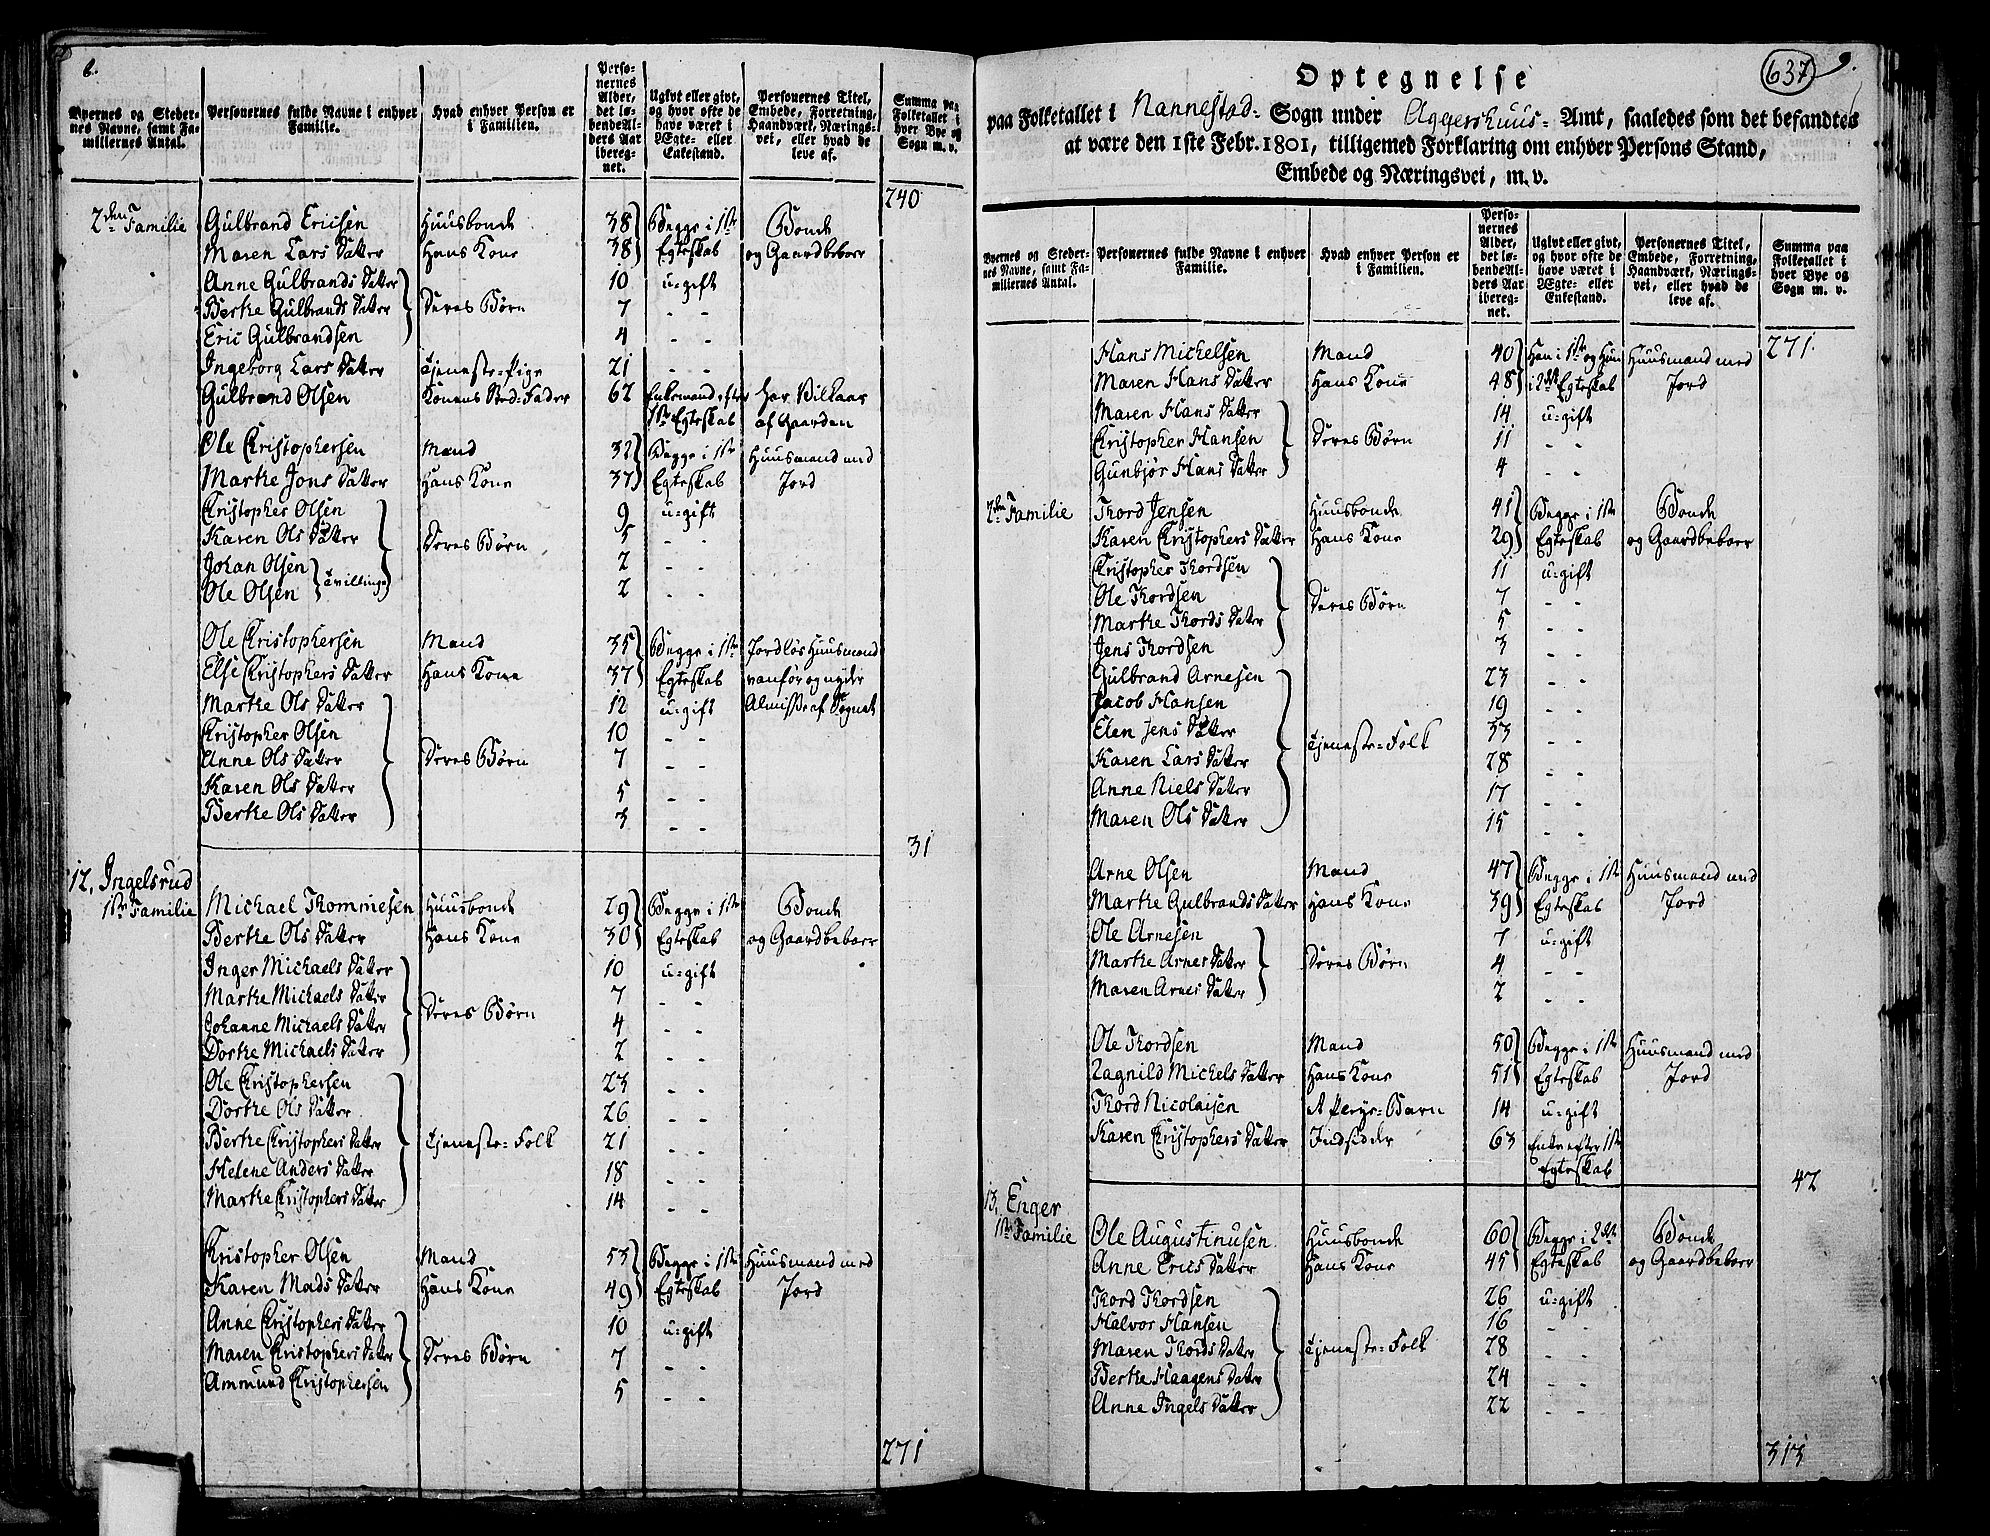 6.
Byernes og Steder-
nes Navne, samt Fa-
miliernes Antal.
Personernes fulde Navne i enhver
Familie.
Hvad enhver Person er
i Familien.
Perso-
nernes
Alder,
det lø-
bende Al-
ders Aar
ibereg-
net.
Ugivt eller givt,
og hvor ofte de
have været i
Ægte- eller
Enkestand.
Personernes Titel,
Embede, Forretning,
Haandværk, Nærings-
vei, eller hvad de
leve af.
Summa paa
Folketallet i
hver Bye og
Sogn m. v.
240
2den Familie Gulbrand Ericsen Huusbonde 38 Begge i 1ste Bonde
Maren Lars Datter Hans Kone 38 Egteskab og Gaardbeboer
Anne Gulbrands Datter 10 u-gift
Berthe Gulbrands Datter Deres Børn 7 - -
Eric Gulbrandsen 4 - -
Ingeborg Lars Datter tjeneste-Pige 21 - -
Gulbrand Olsen Konens Sted-Fader 62 Enkemand efter Har Vilkaar
1ste Egteskab af Gaarden
Ole Christophersen Mand 32 Begge i 1ste Huusmand med
Marthe Jons Datter Hans Kone 37 Egteskab Jord
Christopher Olsen 9 u-gift
Karen Ols Datter Deres Børn 5 - -
Johan Olsen 2 - -
Ole Olsen tvillinge 2 - -
Ole Christophersen Mand 35 Begge i 1ste Jordløs Huusmand
Else Christophers Datter Hans Kone 37 Egteskab vanfør og nyder
Marthe Ols Datter 12 u-gift Almisse af Sognet
Christopher Olsen 10 - -
Anne Ols Datter Deres Børn 7 - -
Karen Ols Datter 5 - -
Berthe Ols Datter 3 - -
31
12, Ingelsrud
1ste Familie Michael Thommesen Huusbonde 29 Begge i 1ste Bonde
Berthe Ols Datter Hans Kone 30 Egteskab og Gaardbeboer
Inger Michaels Datter 10 u-gift
Marthe Michaels Datter 7 - -
Johanne Michaels Datter Deres Børn 4 - -
Dorthe Michaels Datter 2 - -
Ole Christophersen 23 - -
Dorthe Ols Datter 26 - -
Berthe Christophers Datter tjeneste-Folk 21 - -
Helene Anders Datter 18 - -
Marthe Christophers Datter 14 - -
Christopher Olsen Mand 53 Begge i 1ste Huusmand med
Karen Mads Datter Hans Kone 49 Egteskab Jord
Anne Christophers Datter 10 u-gift
Maren Christophers Datter Deres Børn 7 - -
Ammund Christophersen 5 - -
271
637 9.
Optegnelse
paa Folketallet i Nannestad Sogn under Aggershuus Amt, saaledes som det befandtes
at være den 1ste Febr. 1801, tilligemed Forklaring om enhver Persons Stand,
Embede og Næringsvei, m. v.
Byernes og Steder-
nes Navne, samt Fa-
miliernes Antal.
Personernes fulde Navne i enhver
Familie.
Hvad enhver Person er
i Familien.
Perso-
nernes
Alder,
det lø-
bende Al-
ders Aar
ibereg-
net.
Ugivt eller givt,
og hvor ofte de
have været i
Ægte- eller
Enkestand.
Personernes Titel,
Embede, Forretning,
Haandværk, Nærings-
vei, eller hvad de
leve af.
Summa paa
Folketallet i
hver Bye og
Sogn m. v.
271.
Hans Michelsen Mand 40 Han i 1ste og Hun Huusmand med
Maren Hans Datter Hans Kone 48 i 2det Egteskab Jord
Maren Hans Datter 14 u-gift
Christopher Hansen Deres Børn 11 - -
Gunbjør Hans Datter 4 - -
2den Familie Thord Jensen Huusbonde 41 Begge i 1ste Bonde
Karen Christophers Datter Hans Kone 29 Egteskab og Gaardbeboer
Christopher Thordsen 11 u-gift
Ole Thordsen Deres Børn 7 - -
Marthe Thords Datter 5 - -
Jens Thordsen 3 - -
Gulbrand Arnesen 23 - -
Jacob Hansen 19 - -
Elen Jens Datter 33 - -
Karen Lars Datter tjeneste-Folk 28 - -
Anne Niels Datter 17 - -
Maren Ols Datter 15 - -
Arne Olsen Mand 47 Begge i 1ste Huusmand med
Marthe Gulbrands Datter Hans Kone 39 Egteskab Jord
Ole Arnesen 7 u-gift
Marthe Arnes Datter Deres Børn 4 - -
Maren Arnes Datter 2 - -
Ole Thordsen Mand 50 Begge i 1ste Huusmand med
Ragnild Michels Datter Hans Kone 51 Egteskab Jord
Thord Nicolaisen Pleye-Barn 14 u-gift
Karen Christophers Datter Indsidder 63 Enke efter 1ste
Egteskab
42
13, Enger
1ste Familie Ole Augustinusen Huusbonde 60 Begge i 2det Bonde
Anne Erics Datter Hans Kone 45 Egteskab og Gaardbeboer
Thord Thordsen 26 u-gift
Halvor Hansen 16 - -
Maren Thords Datter tjeneste-Folk 28 - -
Berthe Haagens Datter 24 - -
Anne Ingels Datter 22 - -
313